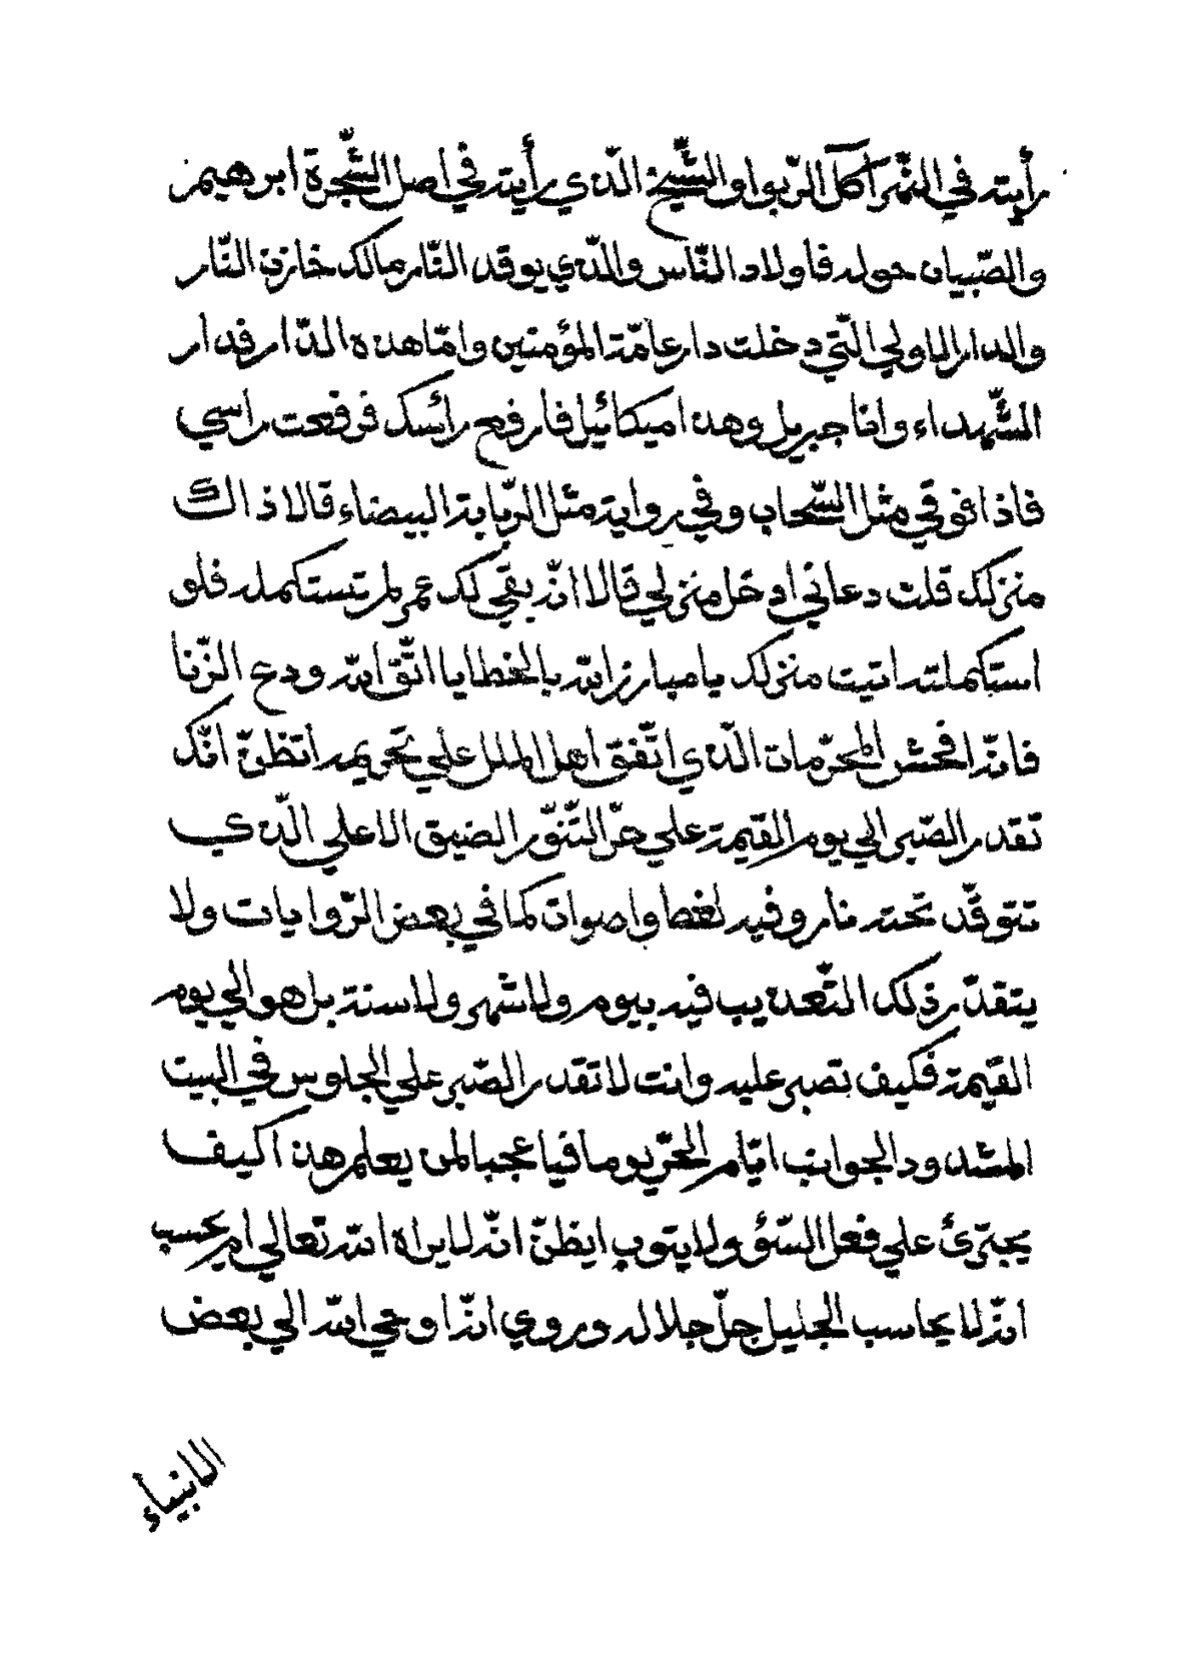 رأيته في النّهر آكل الرّبوا والشّيخ الّذي رأيته في اصل الشّجرة ابرهيم
والصّبيان حوله فاولاد النّاس والّذي يوقد النّار مالك خازن النّار
والدار الاولي الّتي دخلت دار عامّة المؤمنين وامّا هذه الدّار فدار
الشّهداء وانا جبريل وهذا ميكائيل فارفع رائسك فرفعت راسي
فاذا فوقي مثل السّحاب وفي رواية مثل الرّبابة البيضاء قالا ذاك
منزلك قلت دعاني ادخل منزلي قالا انّه بقي لك عمر لم تستكمله فلو
استكملته اتيت منزلك يا مبارز الله بالخطايا اتّق الله ودع الزّنا
فانّه افحش المحرّمات الّذي اتّفق اهل الملل علي تحريمه اتظنّ انّك
تقدر الصّبر الي يوم القيمة علي حرّ التّنّور الضيق الاعلي الّذي
تتوقّد تحته نار وفيه لغط واصوات كما في بعض الرّوايات ولا
يتقدّر ذلك التّعذيب فيه بيوم ولا شهر ولا سنة بل هو الي يوم
القيمة فكيف تصبر عليه وانت لا تقدر الصّبر علي الجلوس في البيت
المشدود الجوانب ايّام الحرّ يوما فيا عجبا لمن يعلم هذا كيف
يجترئ علي فعل السّؤ ولا يتوب ايظنّ انّه لا يراه الله تعالي ام يحسب
انّه لا يحاسب الجليل جلّ جلاله وروي انّه اوحي الله الي بعض
الانبياء